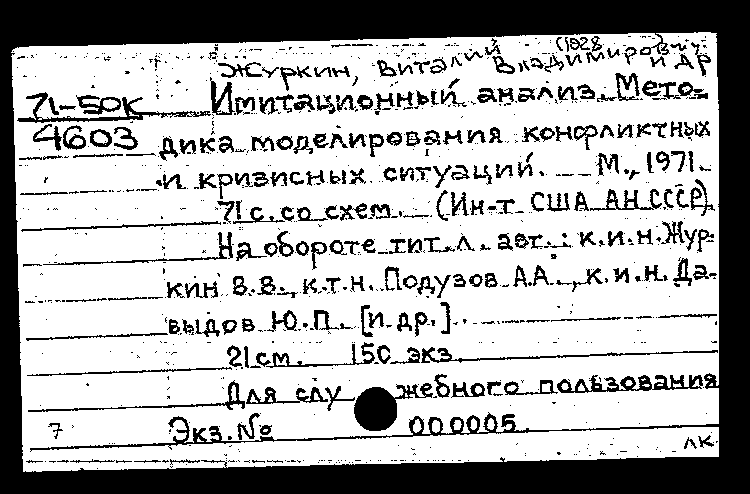 (1928
Журкин, Виталий Владимирович и др
71-50К Имитационный анализ. Мето-
4603 дика моделирования конфликтных
и кризисных ситуаций. М., 1971.
71 с. со схем. (Ин-т США АН СССР).
На обороте тит. л. авт.: к.и.н. Жур-
кин В.В., к.т.н. Подузов А.А., к.и.н. Да-
выдов Ю.П. [и др.].
21 см. 150 экз.
Для служебного пользования
7 Экз. № 000005.
ЛК